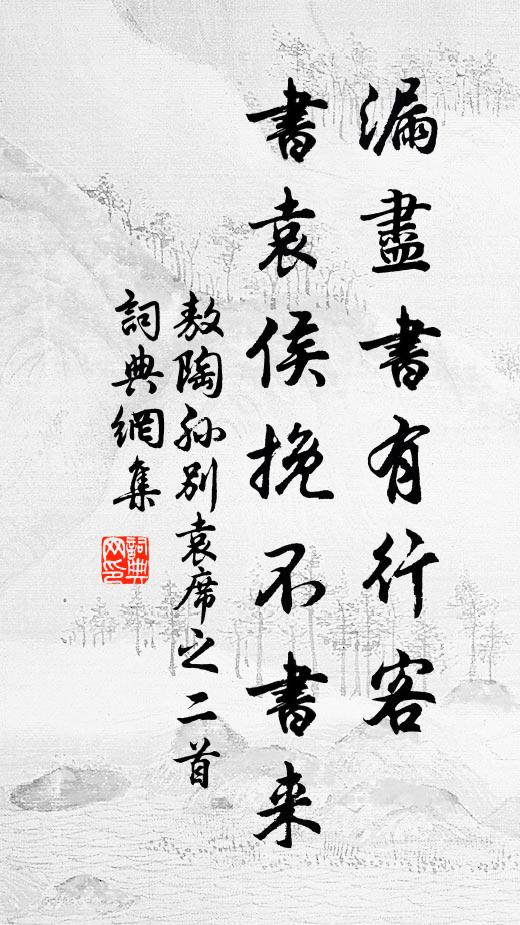 漏盡書有行客
書袁侯挽不書来
敖陶孫別袁席之二首
詞典網集
詞典网印